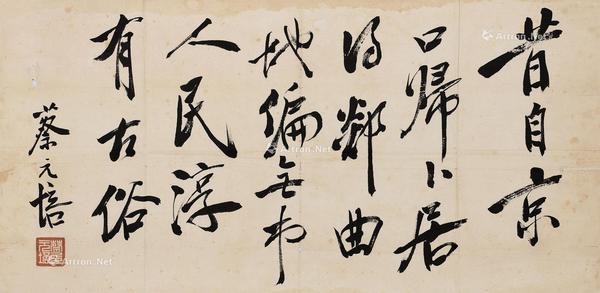 昔自京
口歸卜居
得鄰曲
地偏無市
人民淳
有古俗
蔡元培
Artron.Net
Artron.Net
Artron.Net